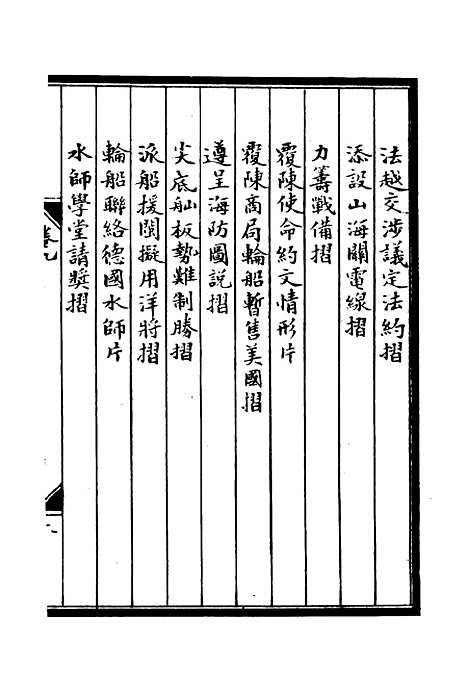 法越交涉議定法約摺
添設山海關電線摺
力籌戰備摺
覆陳使命約文情形片
覆陳商局輪船暫售美國摺
遵呈海防圖說摺
尖底舢板勢難制勝摺
派船援閩擬用洋將摺
輪船聯絡德國水師片
水師學堂請獎摺
卷九